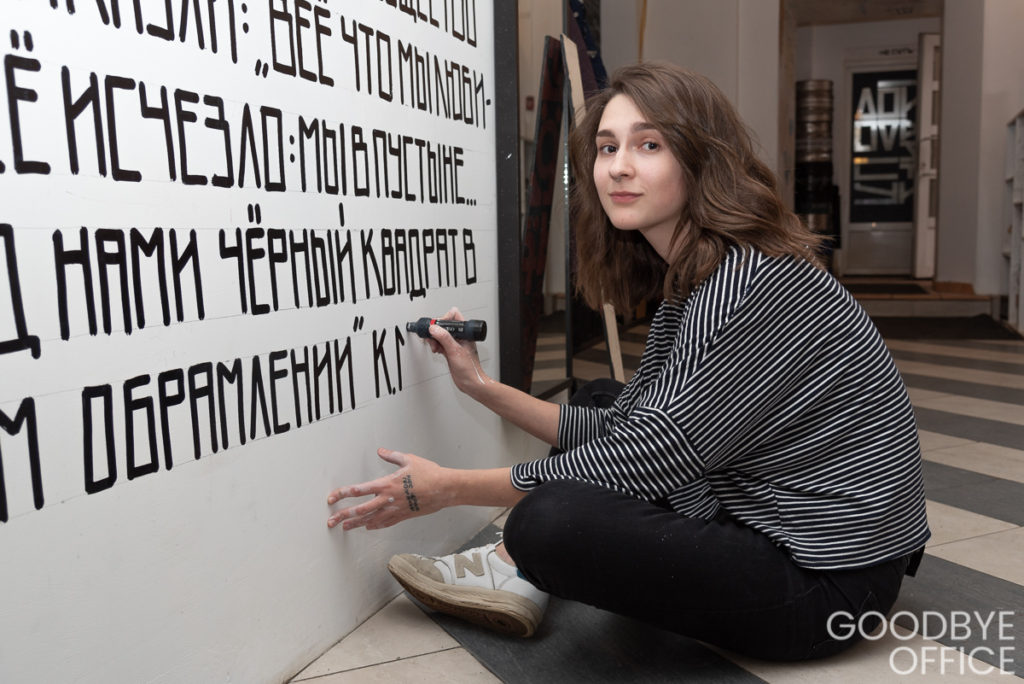 „ВСЁ ЧТО МЫ ЛЮБИ-
Ё ИСЧЕЗЛО: МЫ В ПУСТЫНЕ...
Д НАМИ ЧЁРНЫЙ КВАДРАТ В
М ОБРАМЛЕНИИ" К.
GOODBYE
OFFICE